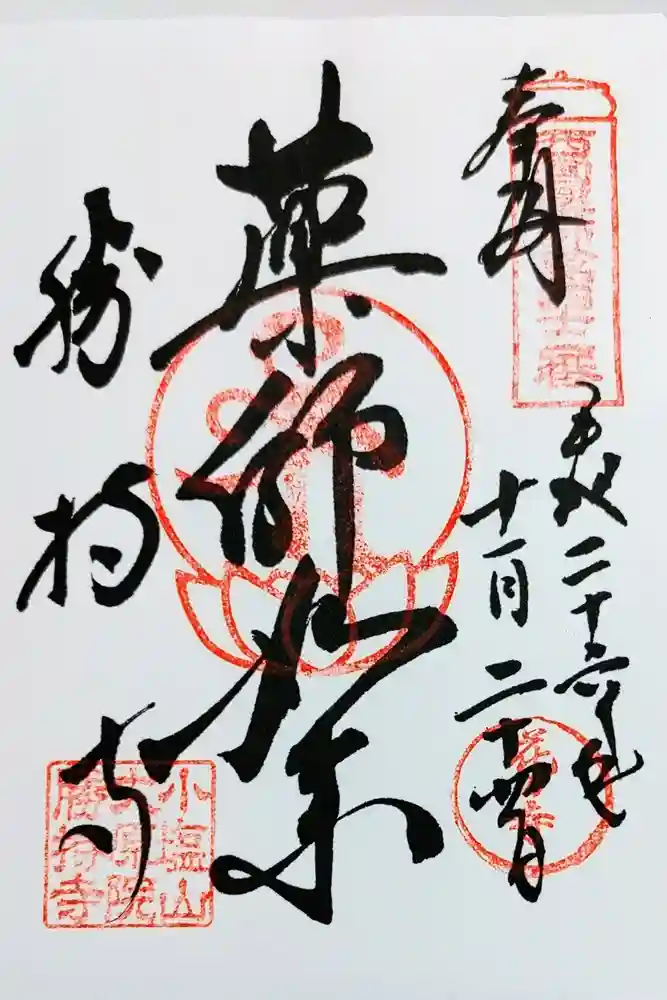 奉拝
平成二十六年
十一月二十四日
薬師如来
勝持寺
小塩山
大原院
勝持寺